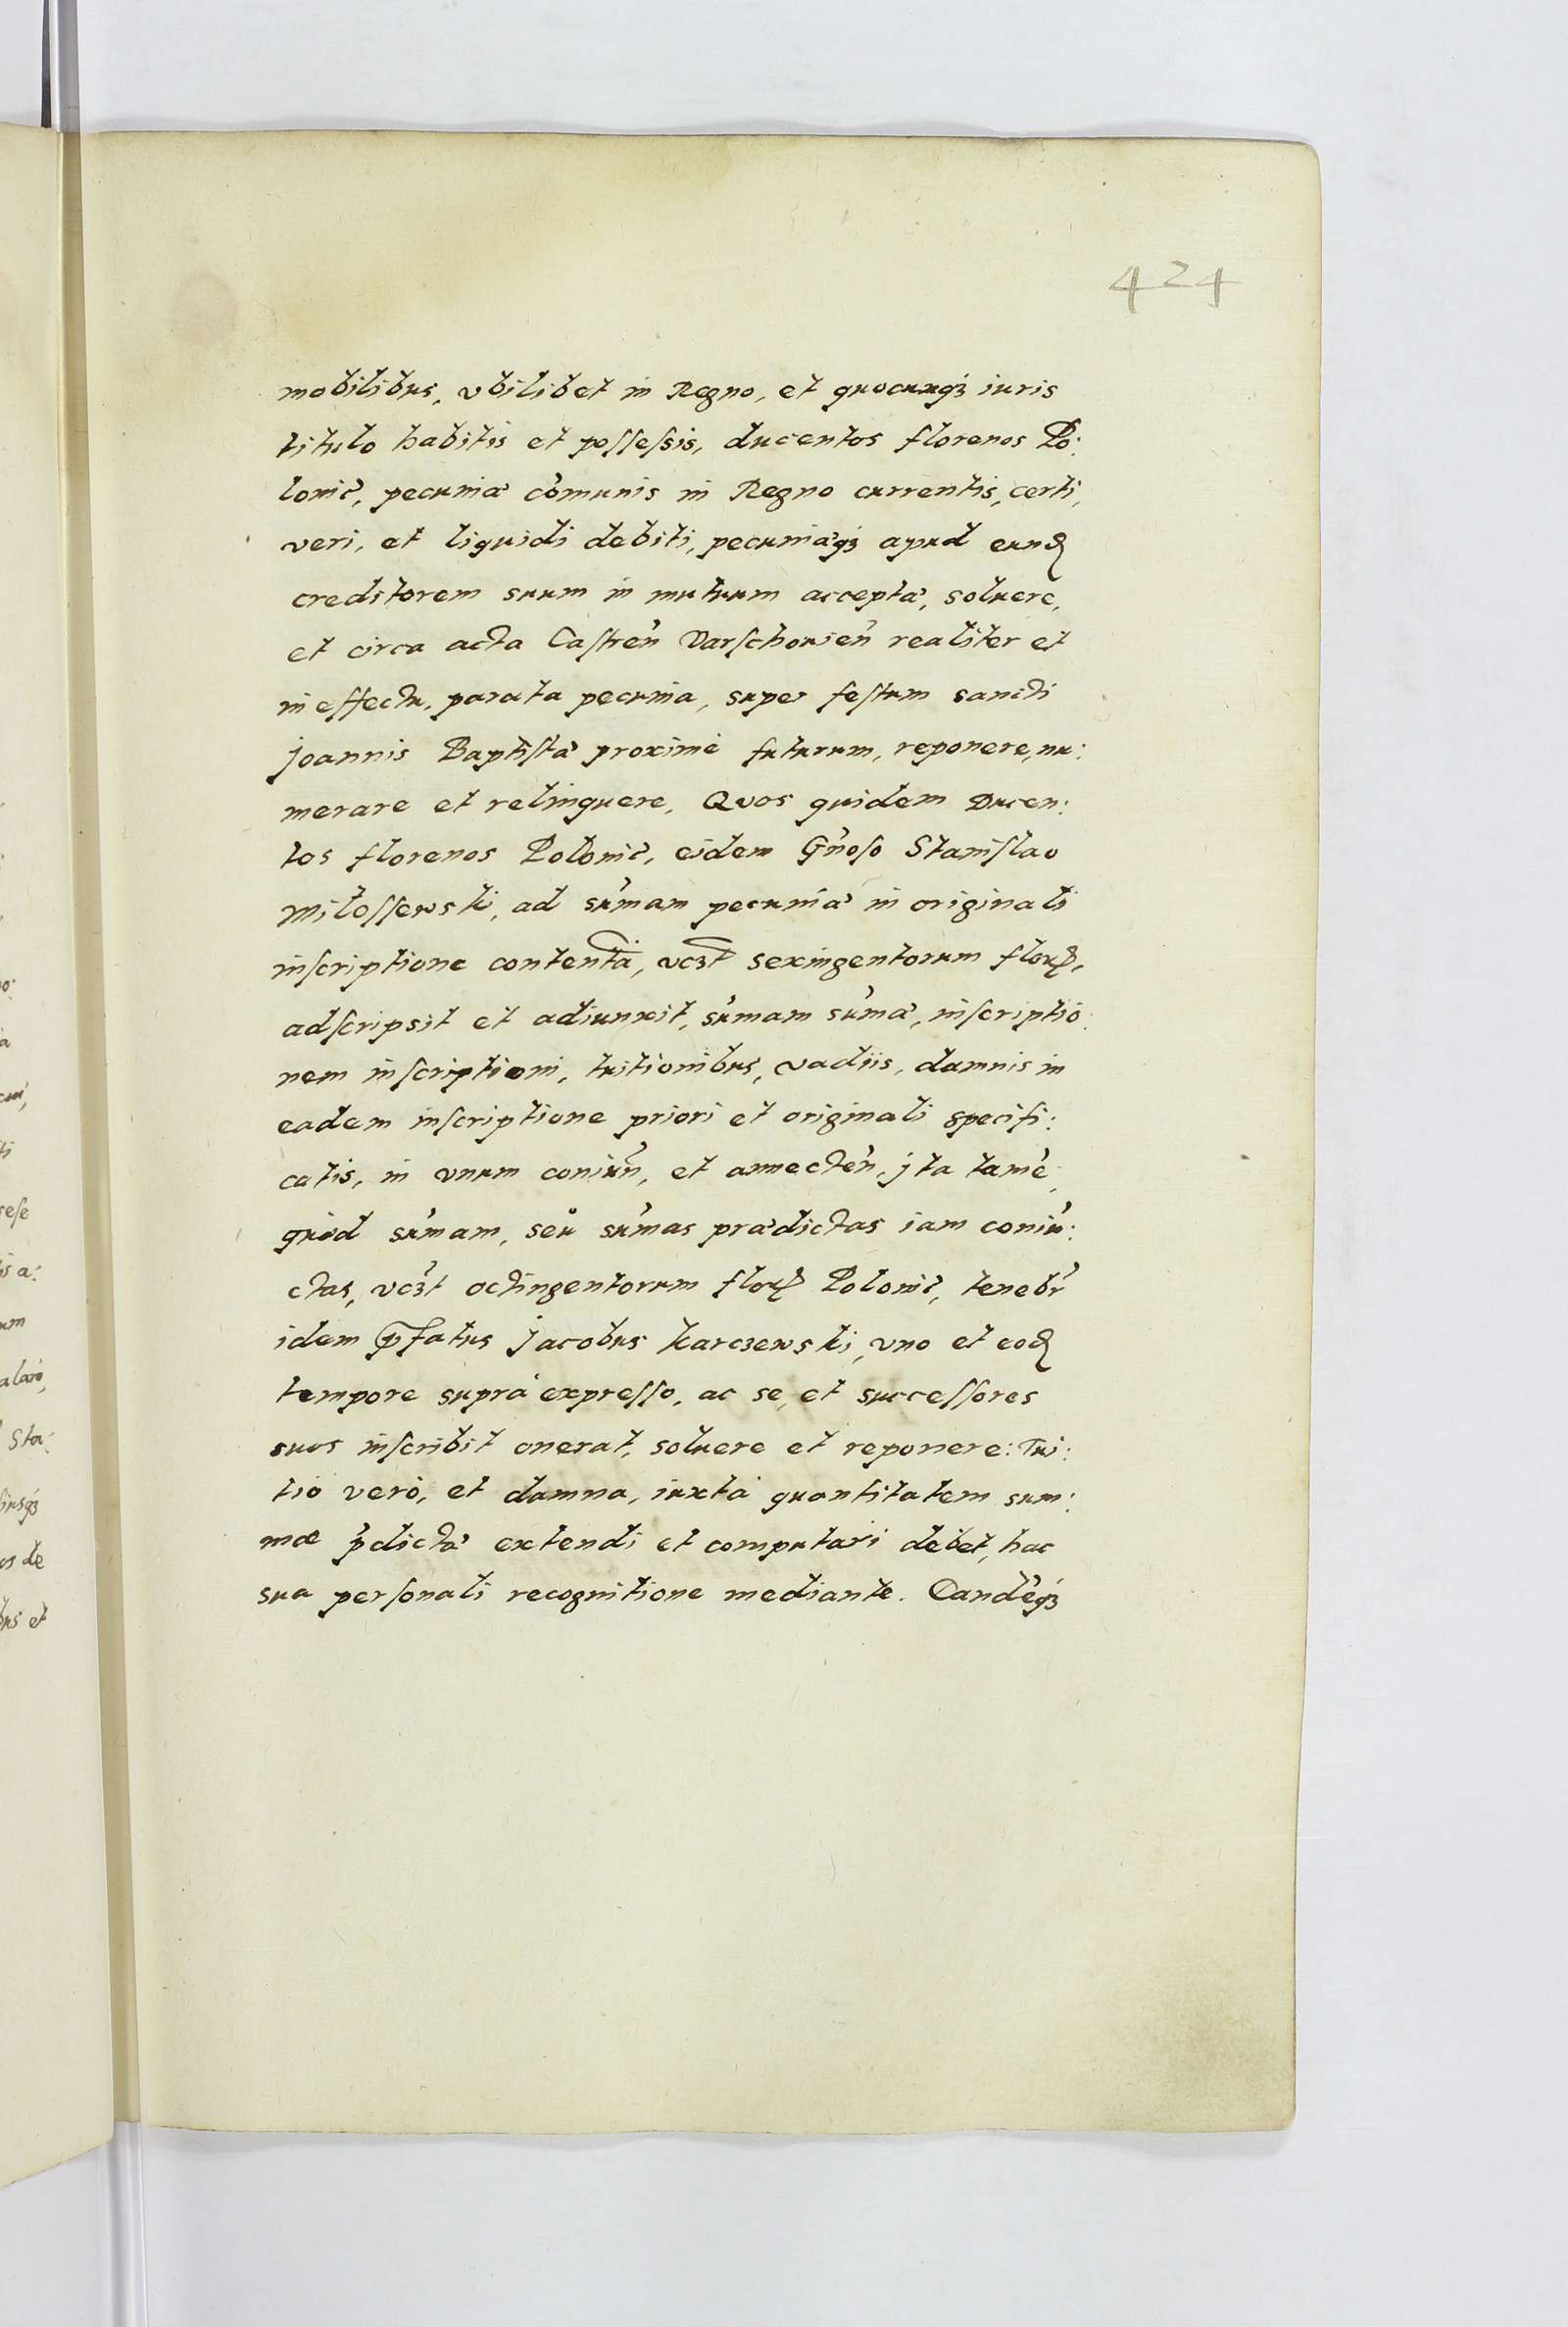 424
mobilibus, vbilibet in Regno, et quocunqꝫ iuris
titulo habitis et poſſeſsis, ducentos florenos Po:
lonic̉, pecuniæ com̉unis in Regno currentis, certi,
veri, et liquidi debiti, pecuniæqꝫ apud eund̃
creditorem suum in mutuum acceptæ, soluere,
et circa acta Caſtren̉ Varſchouien̉ realiter et
in effectu, parata pecunia, super feſtum sancti
joannis Baptiſtæ proximè futurum, reponere, nu:
merare et relinquere, Quos quidem Ducen:
tos florenos Polonic̉, eidem Gn̉oſo Staniſlao
Miloſſewski, ad sum̉am pecuniæ in originali
inſcriptione contentã, vcꝫt sexingentorum floꝝ,
adſcripsit et adiunxit, sum̉am sum̉æ, inſcriptio:
nem inſcriptioni, tuitionibus, vadiis, damnis in
eadem inſcriptione priori et originali specifi:
catis, in vnum coniun̉, et annecten̉, jta tamẻ,
quòd sum̉am, seu̓ sum̉as prædictas iam coniu̓:
ctas, vcꝫt octingentorum floꝝ Polonic̉, tenebr̉
idem p̃fatus jacobus Karczewski, vno et eod̃
tempore suprà expreſſo, ac se, et succeſſores
suos inſcribit onerat, soluere et reponere: Tui:
tio verò, et damna, iuxtà quantitatem sum:
mæ p̉dictæ extendi et computari debet, hac
sua perſonali recognitione mediante. Eandẻqꝫ